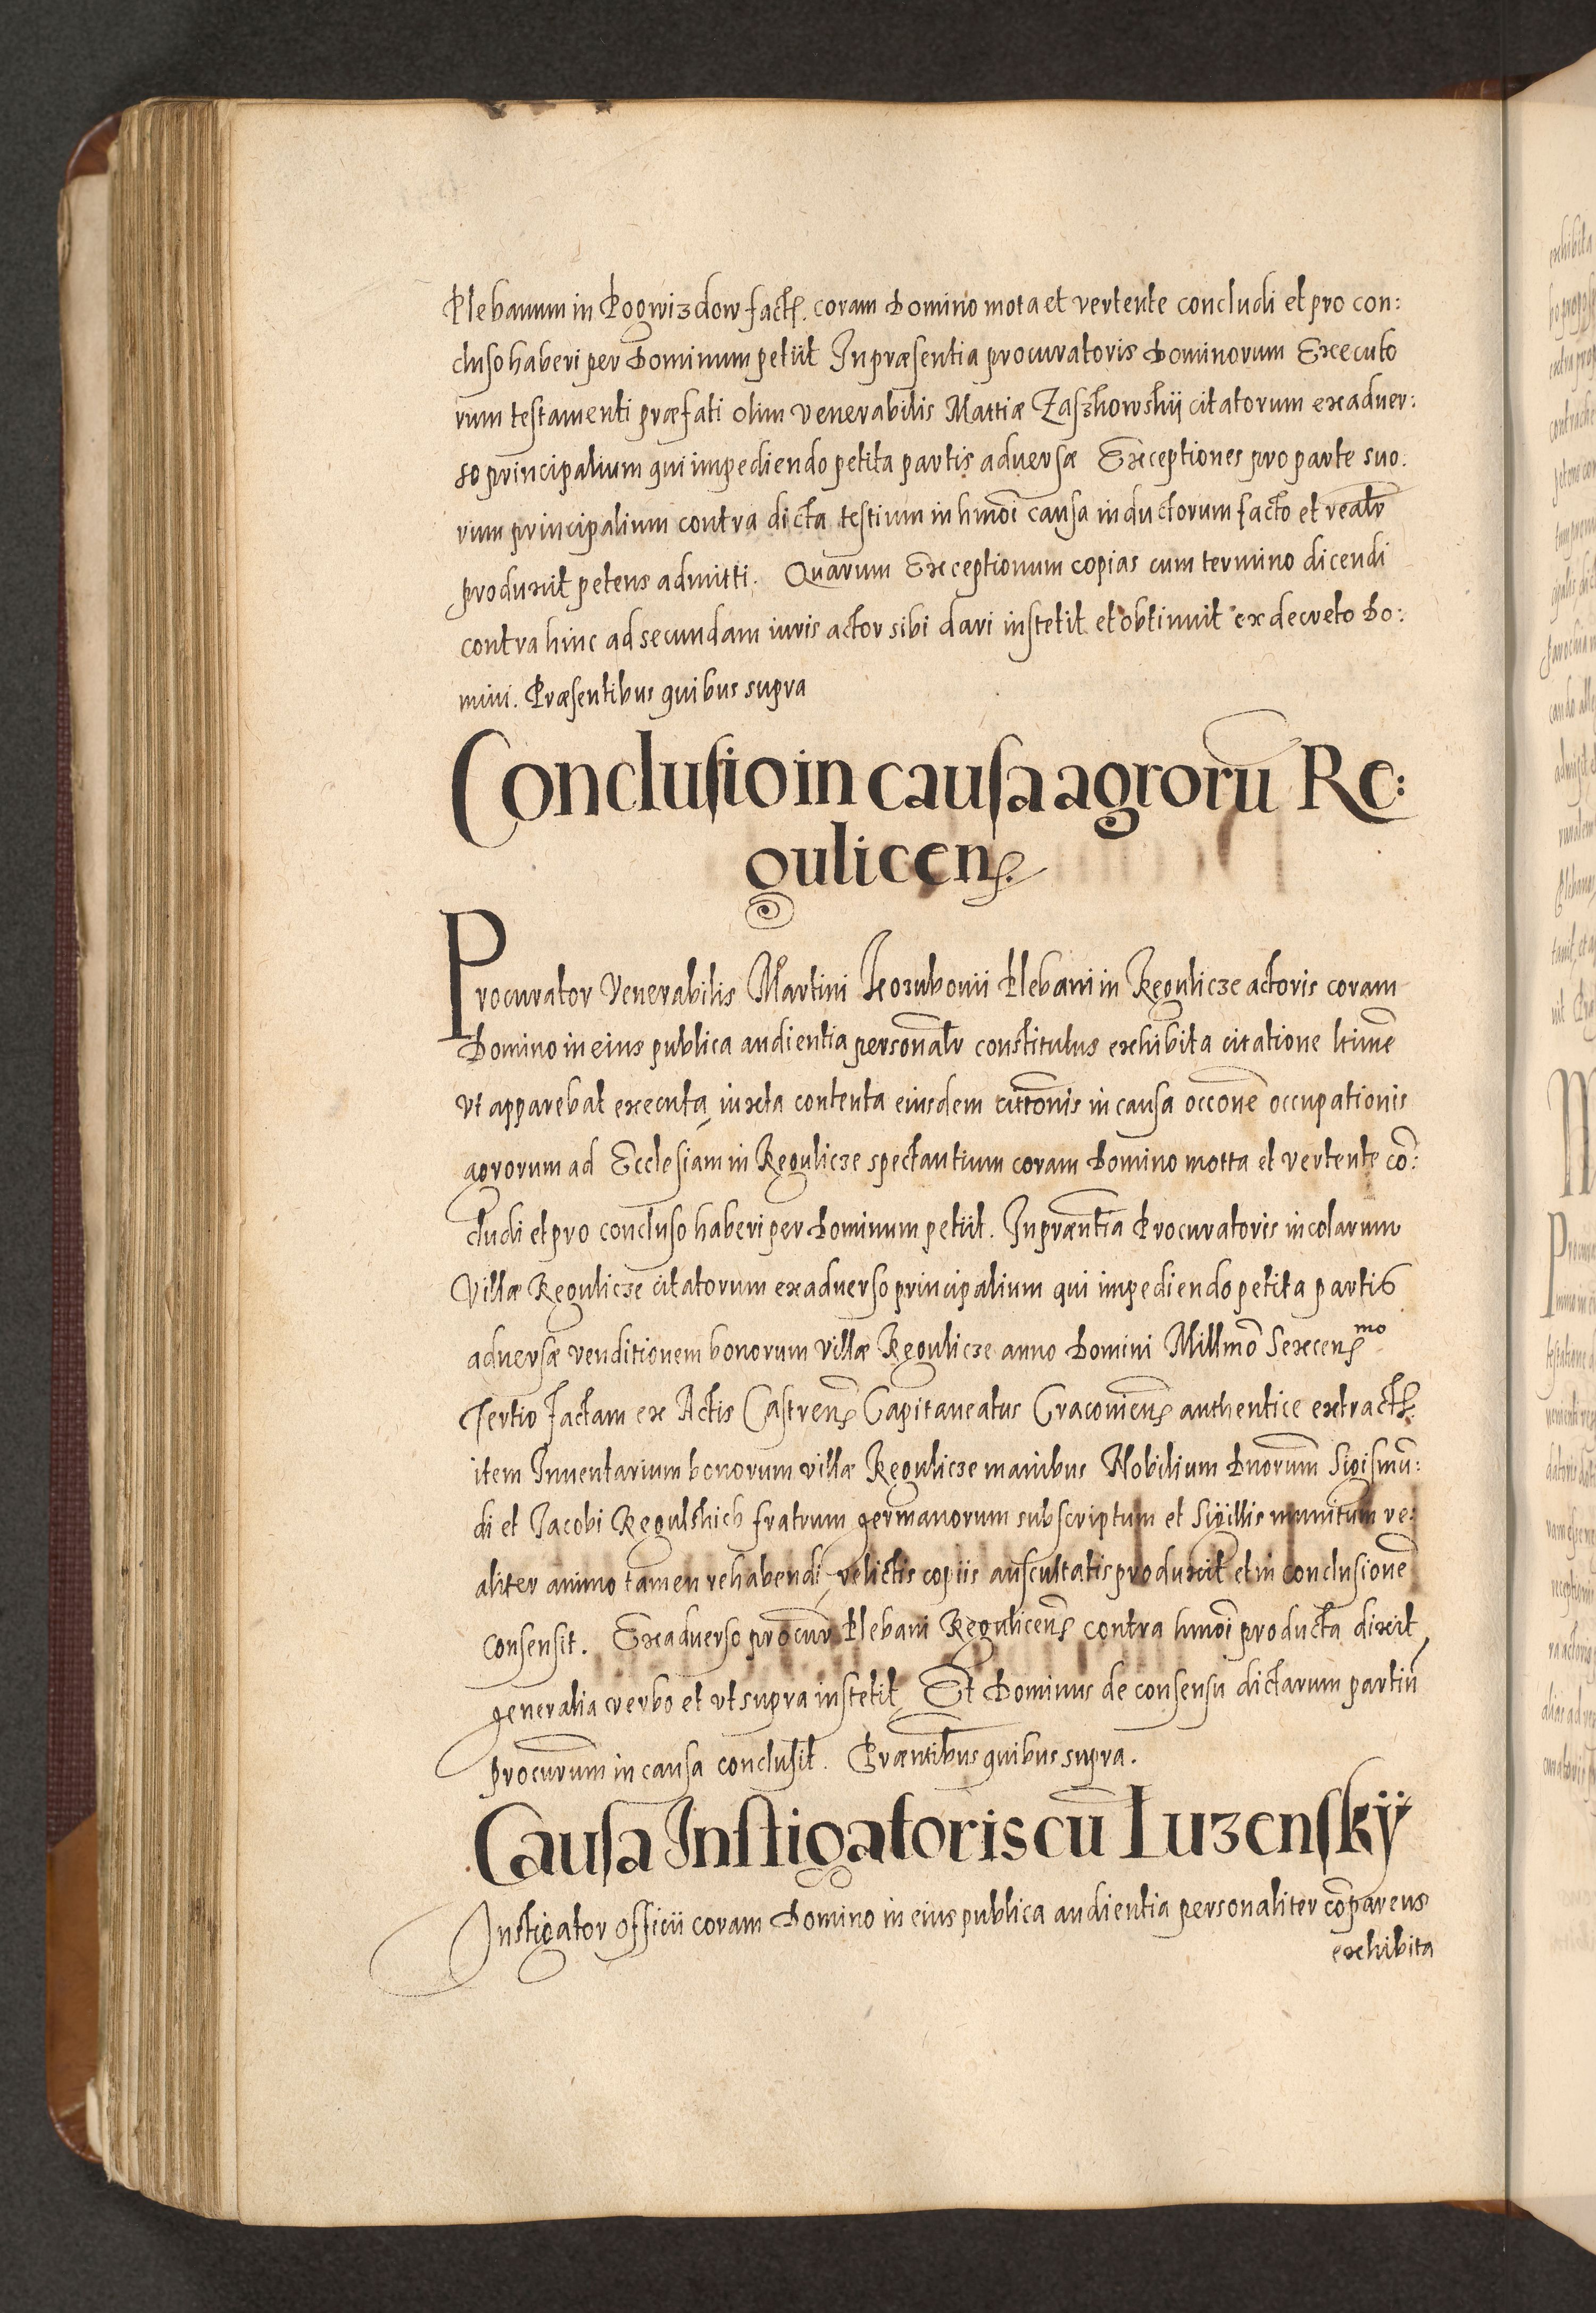 Plebanum in Pogwizdow fact. coram Domino mota et vertente concludi et pro con:
cluso haberi per Dominum petiit In præsentia procuratoris Dominorum Executo
rum testamenti præfati olim venerabilis Mattiæ Zaszkowskii citatorum ex aduer:
so principalium qui impediendo petita partis aduersæ Exceptiones pro parte suo.
rum principalium contra dicta testium in hmoi causa inductorum facto et realr
produxit petens admitti. Quarum Exceptionum copias cum termino dicendi
contra hinc ad secundam iuris actor sibi dari instetit et obtinuit ex decreto Do:
mini. Præsentibus quibus supra
Conclusio in causa agrorū Re:
gulicen.
Procurator Venerabilis Martini Kozubonii Plebani in Regulicze actoris coram
Domino in eius publica audientia personalr constitutus exhibita citatione ltime
vt apparebat executa, iuxta contenta eiusdem cittonis in causa occone occupationis
agrorum ad Ecclesiam in Regulicze spectantium coram Domino motta et vertente cō:
cludi et pro concluso haberi per Dominum petiit. In præntia Procuratoris incolarum
Villæ Regulicze citatorum ex aduerso principalium qui impediendo petita partis
aduersæ venditionem bonorum villæ Regulicze anno Domini Millmo Sexcen mo
Tertio factam ex Actis Castren Capitaneatus Cracouien authentice extract.
item Inuentarium bonorum villæ Regulicze manibus Nobilium Dnorum Sigismū:
di et Jacobi Regulskich fratrum germanorum subscriptum et Sigillis munitum re:
aliter animo tamen rehabendi, relictis copiis auscultatis produxit et in conclusionē
consensit. Ex aduerso procur Plebani Regulicen contra hmoi producta dixit
generalia verbo et vt supra instetit, Et Dominus de consensu dictarum partiū
procurum in causa conclusit. Præntibus quibus supra.
Causa Instigatoris cū Luzenskÿ
Instigator officii coram Domino in eius publica audientia personaliter cōparens
exhibita